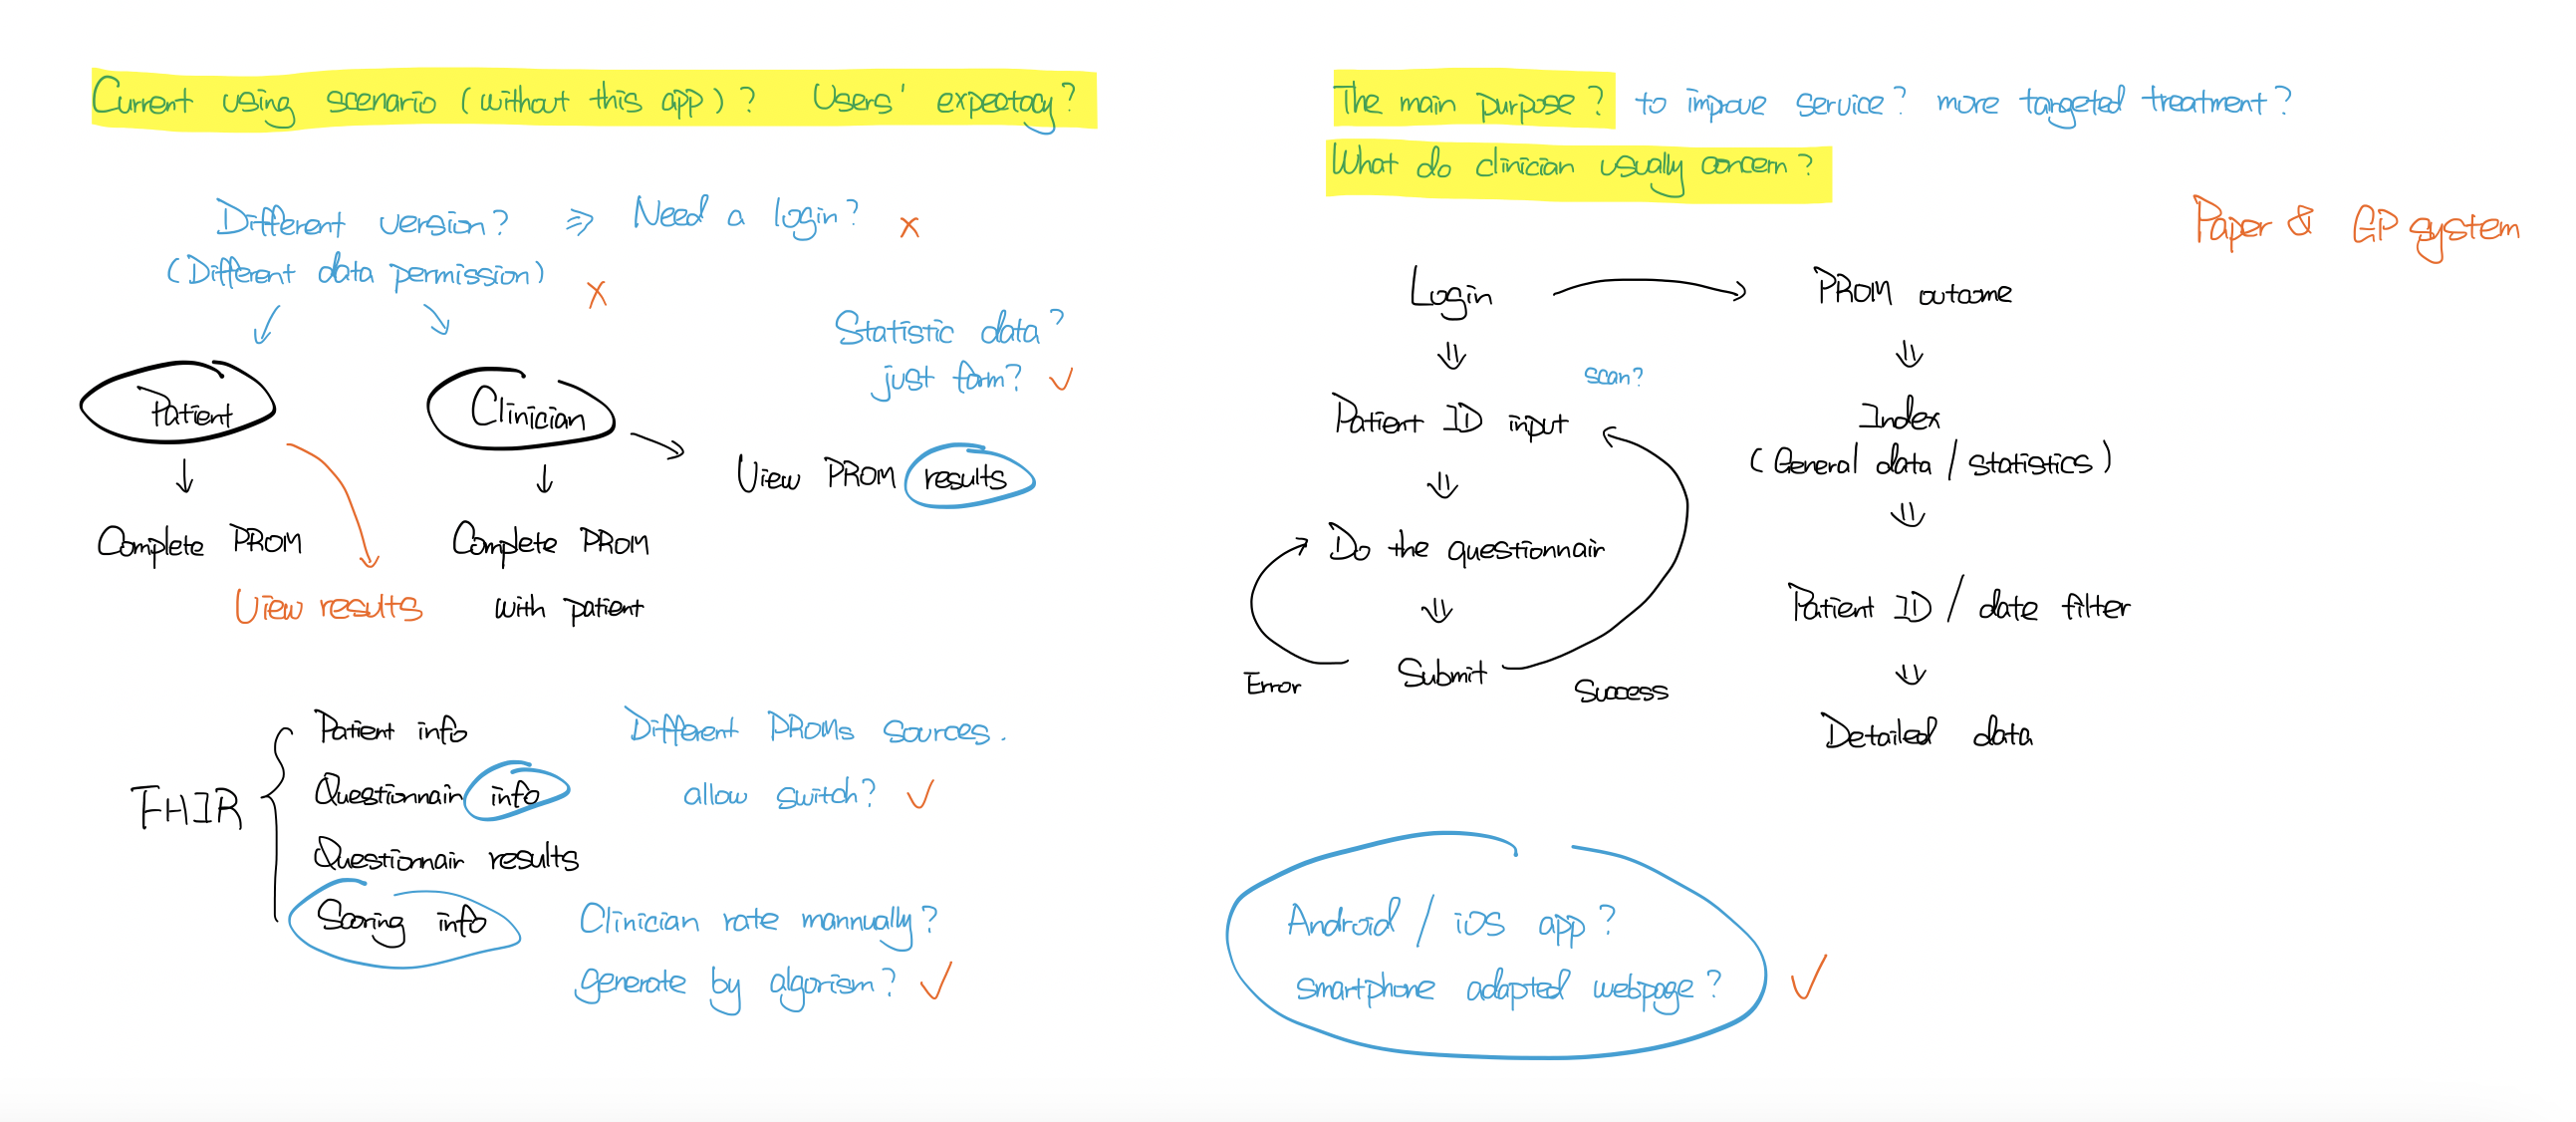 Current using scenario (without this app)? Users' expectacy?
Different version? ⇒ Need a login? x
(Different data permission) x
Statistic data?
just form? ✓
Patient
Clinician
View PROM results
Complete PROM
Complete PROM
with patient
View results
FHIR
Patient info
Questionnair info
Questionnair results
Scoring info
Different PROMs sources.
allow switch? ✓
Clinician rate mannually?
generate by algorism? ✓
The main purpose? to improve service? more targeted treatment?
What do clinician usually concern?
Paper & GP system
Login
PROM outcome
scan?
Patient ID input
Index
(General data / statistics)
Do the questionnair
Patient ID / date filter
Submit
Error
Success
Detailed data
Android / iOS app?
smartphone adapted webpage? ✓